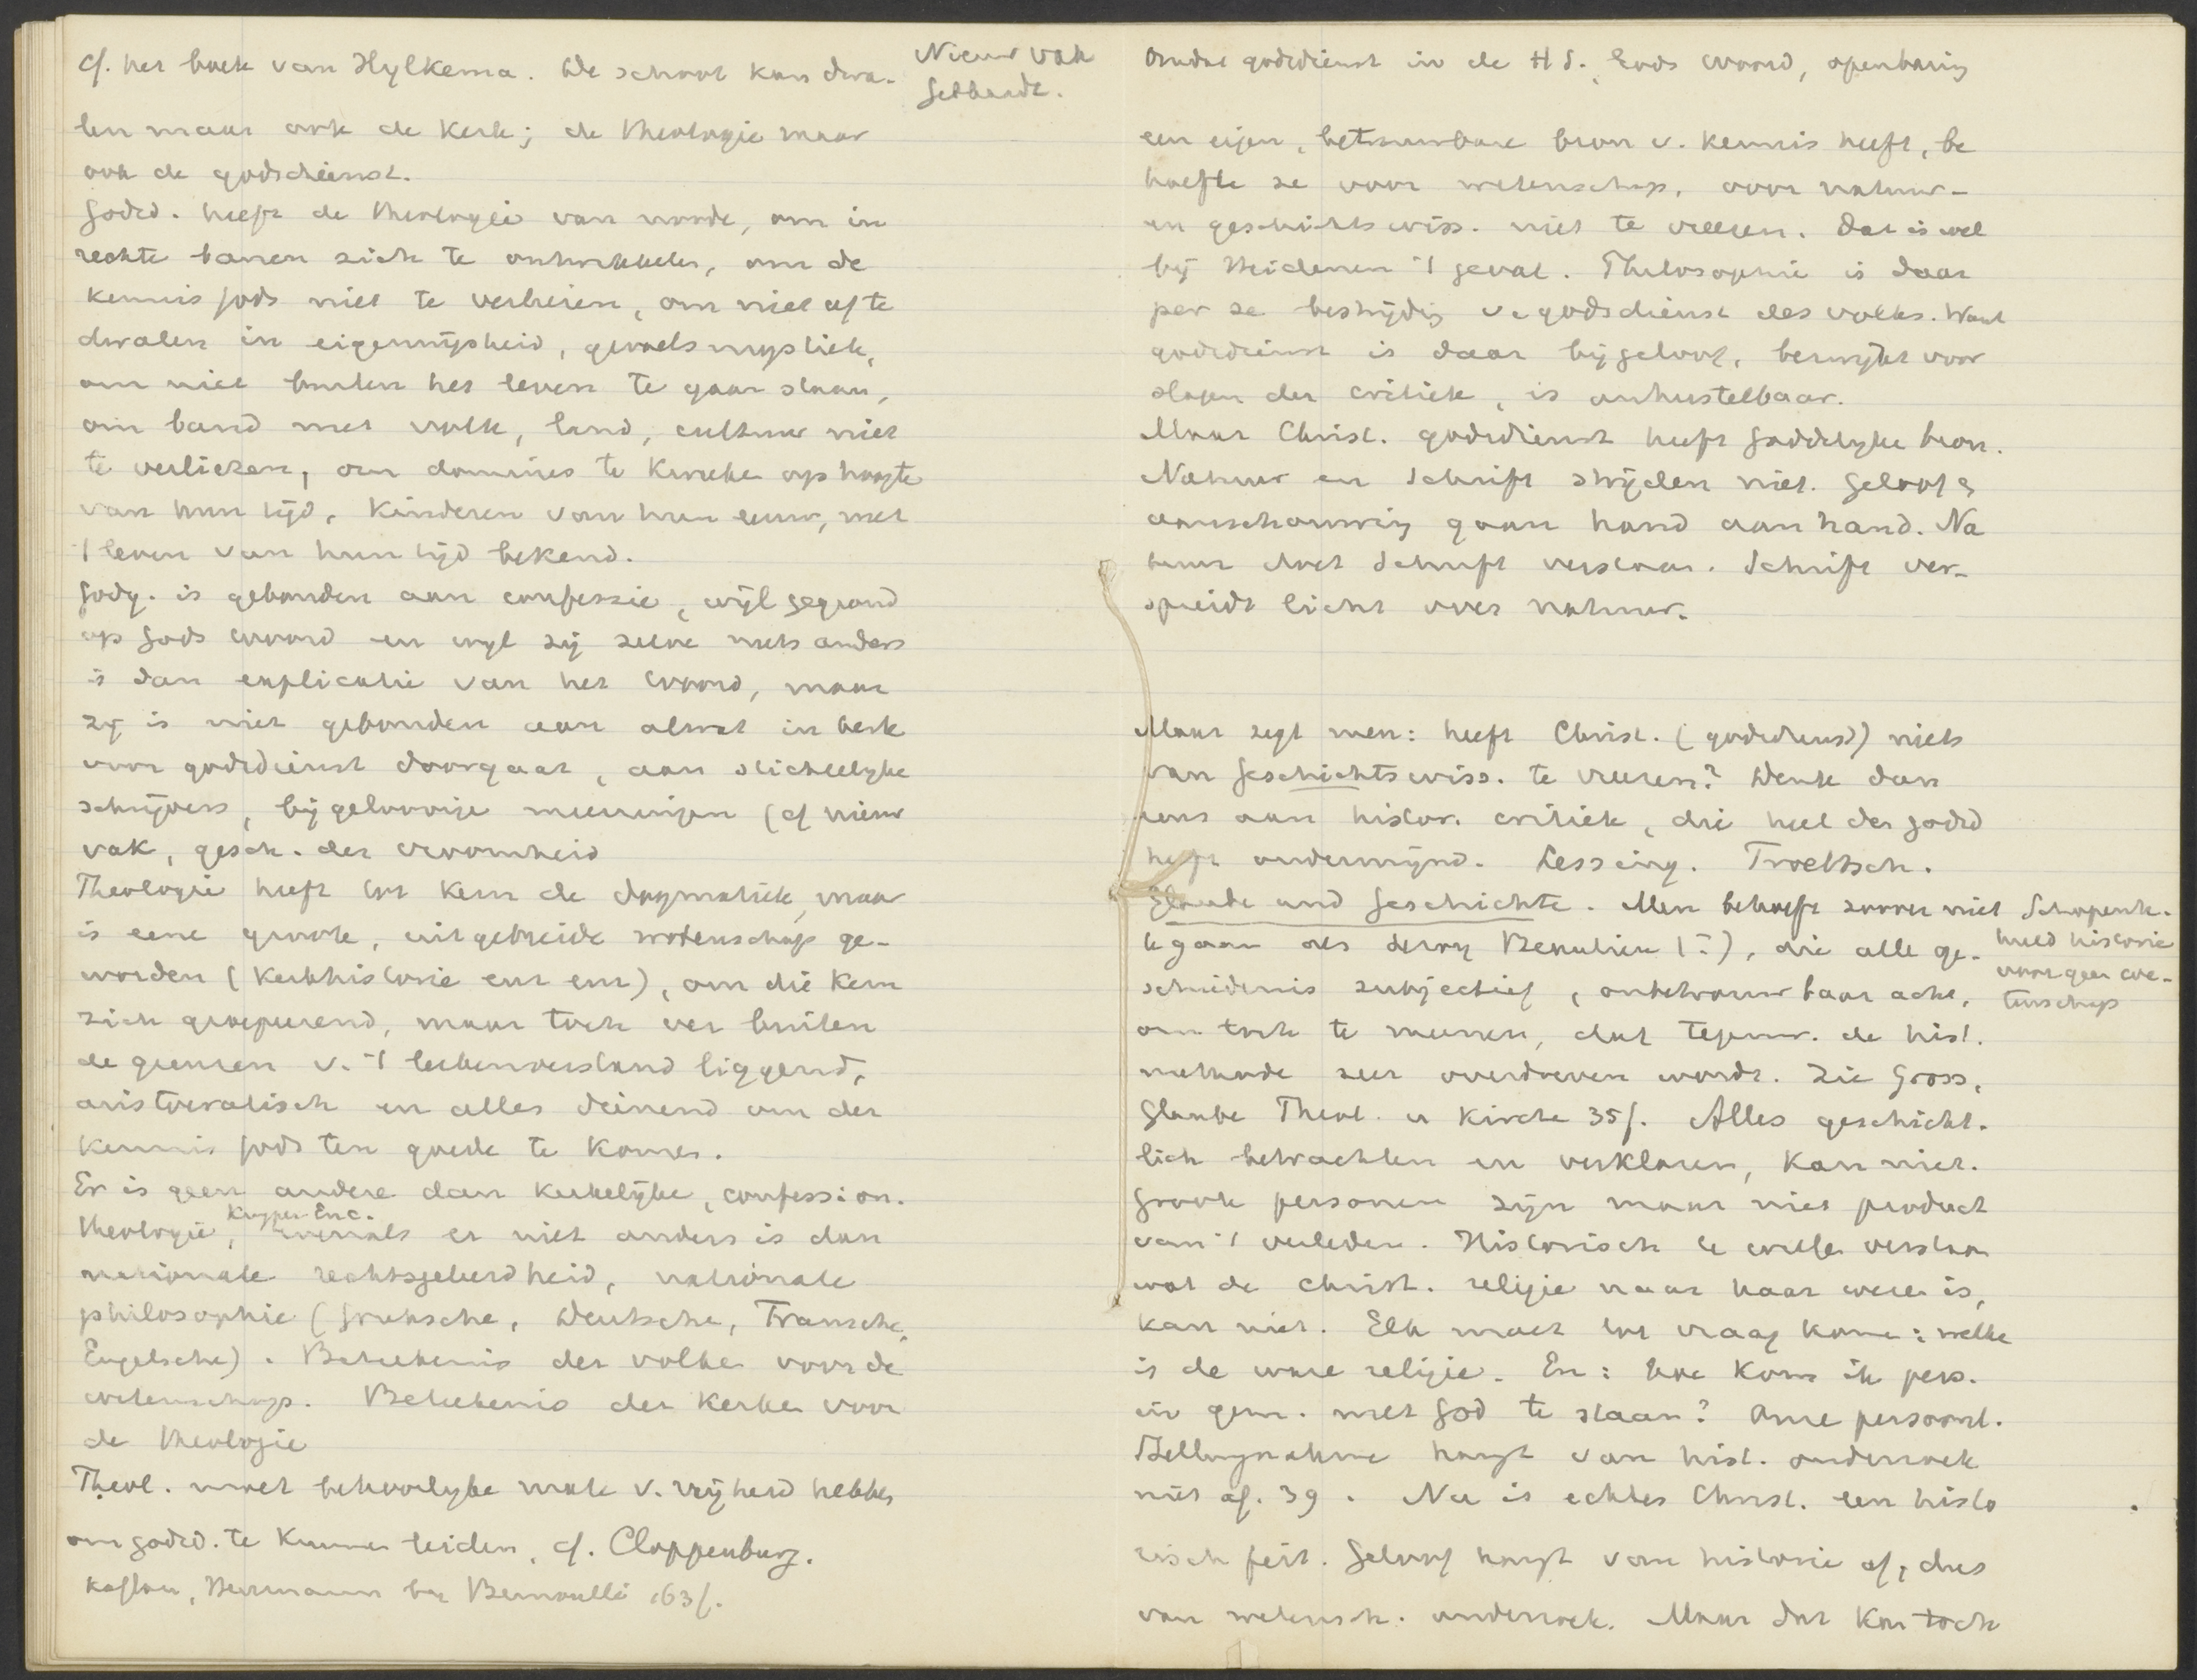 cf. het boek van Hylkema. De school kan dwa-
len maar ook de kerk; de theologie maar
ook de godsdienst.
Godsd. heeft de theologie van noode, om in
rechte banen zich te ontwikkelen, om de
kennis Gods niet te verliezen, om niet af te
dwalen in eigenwijsheid, gevoelsmystiek,
om niet buiten het leven te gaan staan,
om band met volk, land, cultuur niet
te verliezen, om dominees te kweeken op hoogte
van hun tijd, kinderen van hun eeuw, met
't leven van hun tijd bekend.
Godg. is gebonden aan confessie, wijl gegrond
op Gods woord en wijl zij zelve niets anders
is dan explicatie van het woord, maar
zij is niet gebonden aan alwat in kerk
voor godsdienst doorgaat, aan stichtelijke
schrijvers, bijgeloovige meeningen (cf nieuw
vak, gesch. der vroomheid
Theologie heeft tot kern de dogmatiek, maar
is eene groote, uitgebreide wetenschap ge-
worden (kerkhistorie enz enz), om die kern
zich groepeerend, maar toch ver buiten
de grenzen v. 't leekenverstand liggend,
aristocratisch en alles dienend om der
kennis Gods ten goede te komen.
Er is geen andere dan kerkelijke, confession.
Kuyper Enc.
theologie, evenals er niet anders is dan
nationale rechtsgeleerdheid, nationale
philosophie (Grieksche, Deutsche, Fransche,
Engelsche). Beteekenis der volken voor de
wetenschap. Beteekenis der kerken voor
de theologie
Theol. moet behoorlijke mate v. vrijheid hebben
om godsd. te kunnen leiden, cf. Cloppenburg.
Kaftan, Herrmann bij Bernoulli 163f.
Nieuw vak
Gebhardt.
Omdat godsdienst in de H S. Gods woord, openbaring
een eigen, betrouwbare bron v. kennis heeft, be
hoefte ze voor wetenschap, voor natuur-
en geschichtswiss. niet te vreezen. Dat is wel
bij Heidenen 't geval. Philosophie is daar
per se bestrijding v. godsdienst des volks. Want
godsdienst is daar bijgeloof, bezwijkt voor
slagen der critiek, is onherstelbaar.
Maar Christ. godsdienst heeft goddelijke bron.
Natuur en Schrift strijden niet. Geloof &
aanschouwing gaan hand aan hand. Na
tuur doet Schrift verstaan. Schrift ver-
spreidt licht over natuur.
Maar zegt men: heeft Christ. (godsdienst) niets
van Geschichtswiss. te vreezen? Denk dan
eens aan histor. critiek, die heel den godsd
heeft ondermijnd. Lessing. Troeltsch.
Glaube und Geschichte. Men behoeft zoover niet
te gaan als Leroy Beaulieu (?), die alle ge-
schiedenis subjectief, onbetrouwbaar acht,
om toch te meenen, dat tegenw. de hist.
methode zeer overdreven wordt. Zie Gross,
Glaube Theol. u Kirche 35f. Alles geschicht-
lich betrachten en verklaren, kan niet.
Groote personen zijn maar niet product
van 't verleden. Historisch te willen verstaan
wat de christ. religie naar haar wezen is,
kan niet. Elk moet tot vraag komen: welke
is de ware religie. En: hoe kom ik pers.
in gem. met God te staan? Onze persoonl.
Stellungnahme hangt van hist. onderzoek
niet af. 39. Nu is echter Christ. een histo
risch feit. Geloof hangt van historie af, dus
van wetensch. onderzoek. Maar dat kan toch
Schopenh.
hield historie
voor geen we-
tenschap